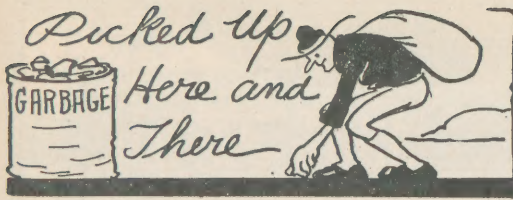 Picked Up
Here and
There
GARBAGE